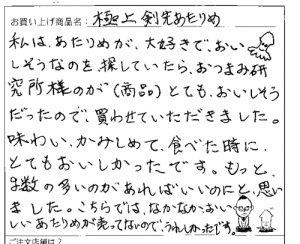 お買い上げ商品名: 極上剣先あたりめ
私は、あたりめが、大好きで、おい
しそうなのを、探していたら、おつまみ研
究所様のが(商品)とても、おいしそう
だったので、買わせていただきました。
味わい、かみしめて、食べた時に、
とてもおいしかったです。もっと、
数の多いのがあれば、いいのにと、思い
ました。こちらでは、なかなかおい
しいあたりめが売ってないので、うれしかったです。
ご注文店舗は?